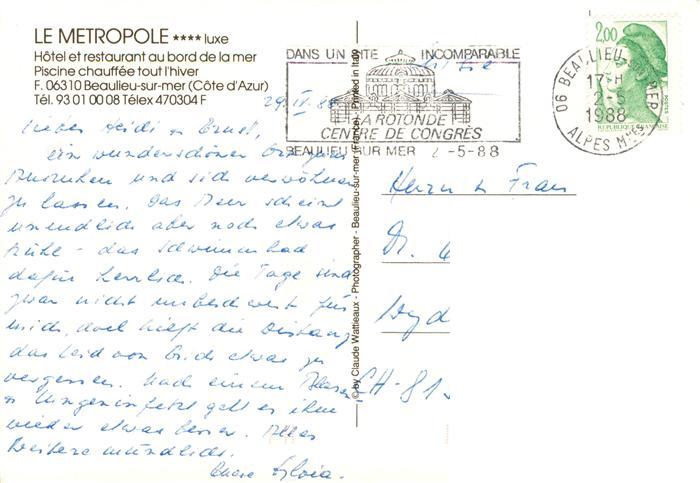 LE METROPOLE **** luxe
Hôtel et restaurant au bord de la mer
Piscine chauffée tout l'hiver
F. 06310 Beaulieu-sur-mer (Côte d'Azur)
Tél. 93 01 00 08 Télex 470304 F
29. IV. 88
Lieber Heidi u Ernst,
Ein wunderschöner Ort zum
Ausruhen und sich verwöhnen
zu lassen. Das Meer scheint
unendlich aber noch etwas
kühl - das Schwimmbad
dafür herrlich. Die Tage sind
zwar nicht unbeschwert für
mich, doch hilft die Distanz
das Leid von etwas zu
vergessen. Nach einem
u Lungeninfekt geht es ihm
wieder etwas besser. Alles
Weitere mündlich.
Sylvia.
© by Claude Wattieaux - Photographer - Beaulieu-sur-mer (France) - Printed in Italy
DANS UN SITE INCOMPARABLE
LA ROTONDE
CENTRE DE CONGRÈS
BEAULIEU SUR MER 2-5-88
06 BEAULIEU-SUR-MER
17 H
2-5
1988
ALPES MMES
2,00
POSTES
REPUBLIQUE FRANÇAISE
Herrn u Frau
Dr.
CH-81